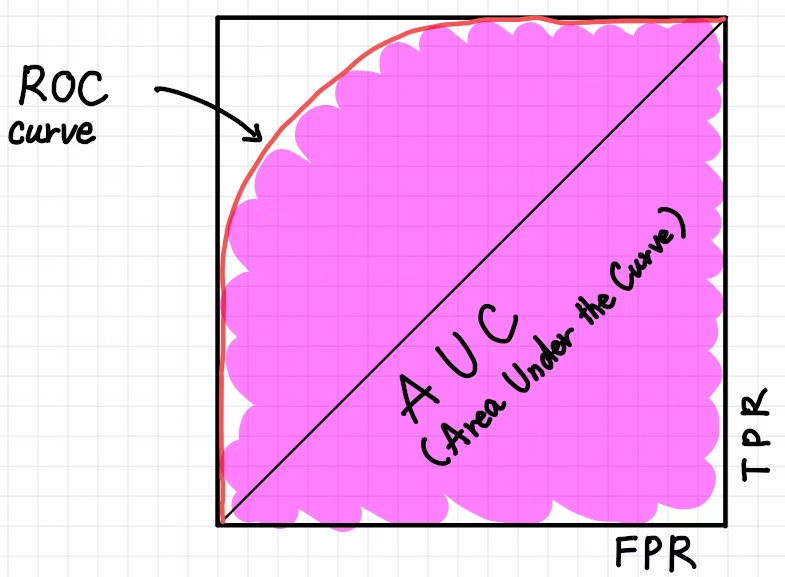 ROC
curve
AUC
(Area Under the Curve)
TPR
FPR